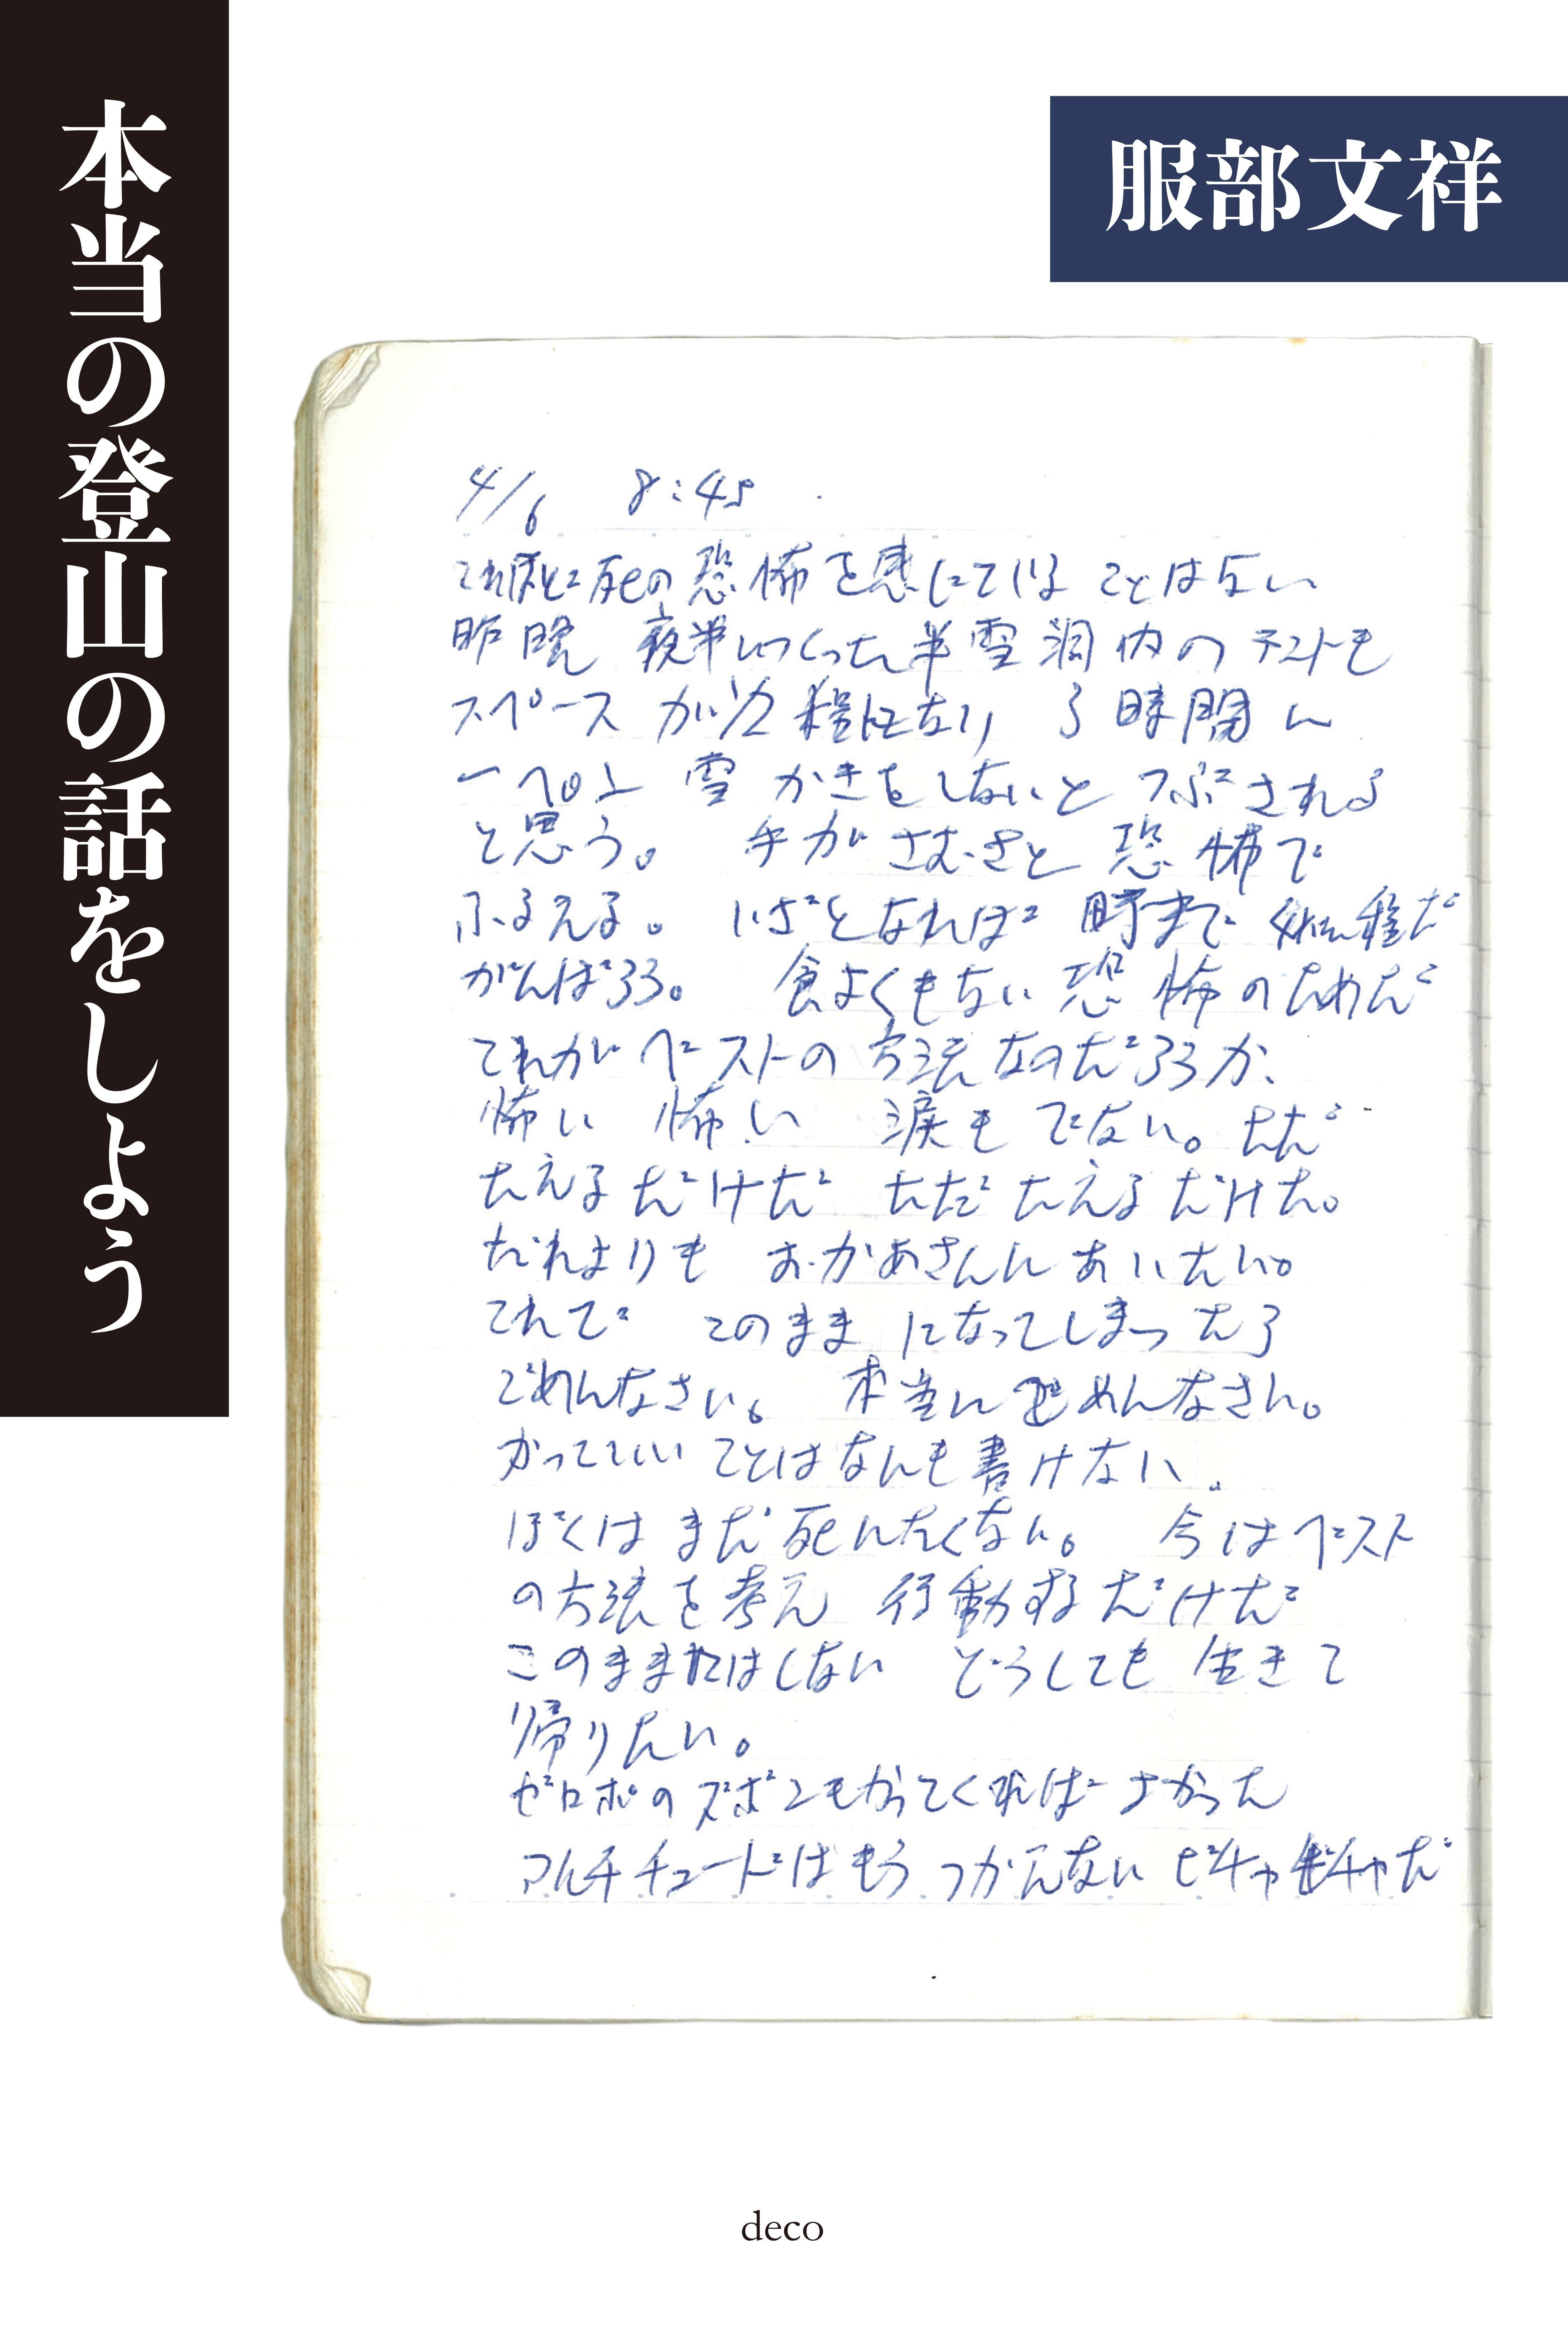 本当の登山の話をしよう
服部文祥
4/6 8:45
これほど死の恐怖を感じていることはない
昨晩 夜半につくった半雪洞内のテントも
スペースが1/2程になり 3時間に
一ぺん 雪かきをしないとつぶされる
と思う。 手がさむさと恐怖で
ふるえる。 いざとなれば 時まで
がんばろう。 食よくもない 恐怖のためだ
これがベストの方法なのだろうか、
怖い 怖い 涙もでない。ただ
たえるだけだ ただたえるだけだ。
だれよりも おかあさんにあいたい。
これで このままになってしまったら
ごめんなさい。 本当にごめんなさい。
かっこいいことはなんも書けない。
ぼくはまだ死にたくない。 今はベスト
の方法を考え 行動するだけだ
このままにはしない どうしても生きて
帰りたい。
ゼロポのズボンもかってくればよかった
マルチチュードはもうつかえない ビチャビチャだ
deco